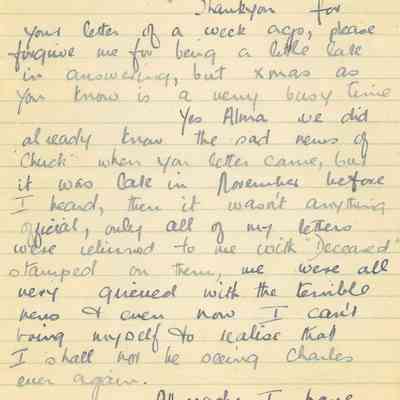 Thankyou for
your letter of a week ago, please
forgive me for being a little late
in answering, but xmas as
you know is a very busy time
Yes Alma we did
already know the sad news of
"Chuck" when your letter came, but
it was late in November before
I heard, then it wasn't anything
official, only all of my letters
were returned to me with "Deceased"
stamped on them, we were all
very grieved with the terrible
news & even now I can't
bring myself to realise that
I shall not be seeing Charles
ever again.
I have